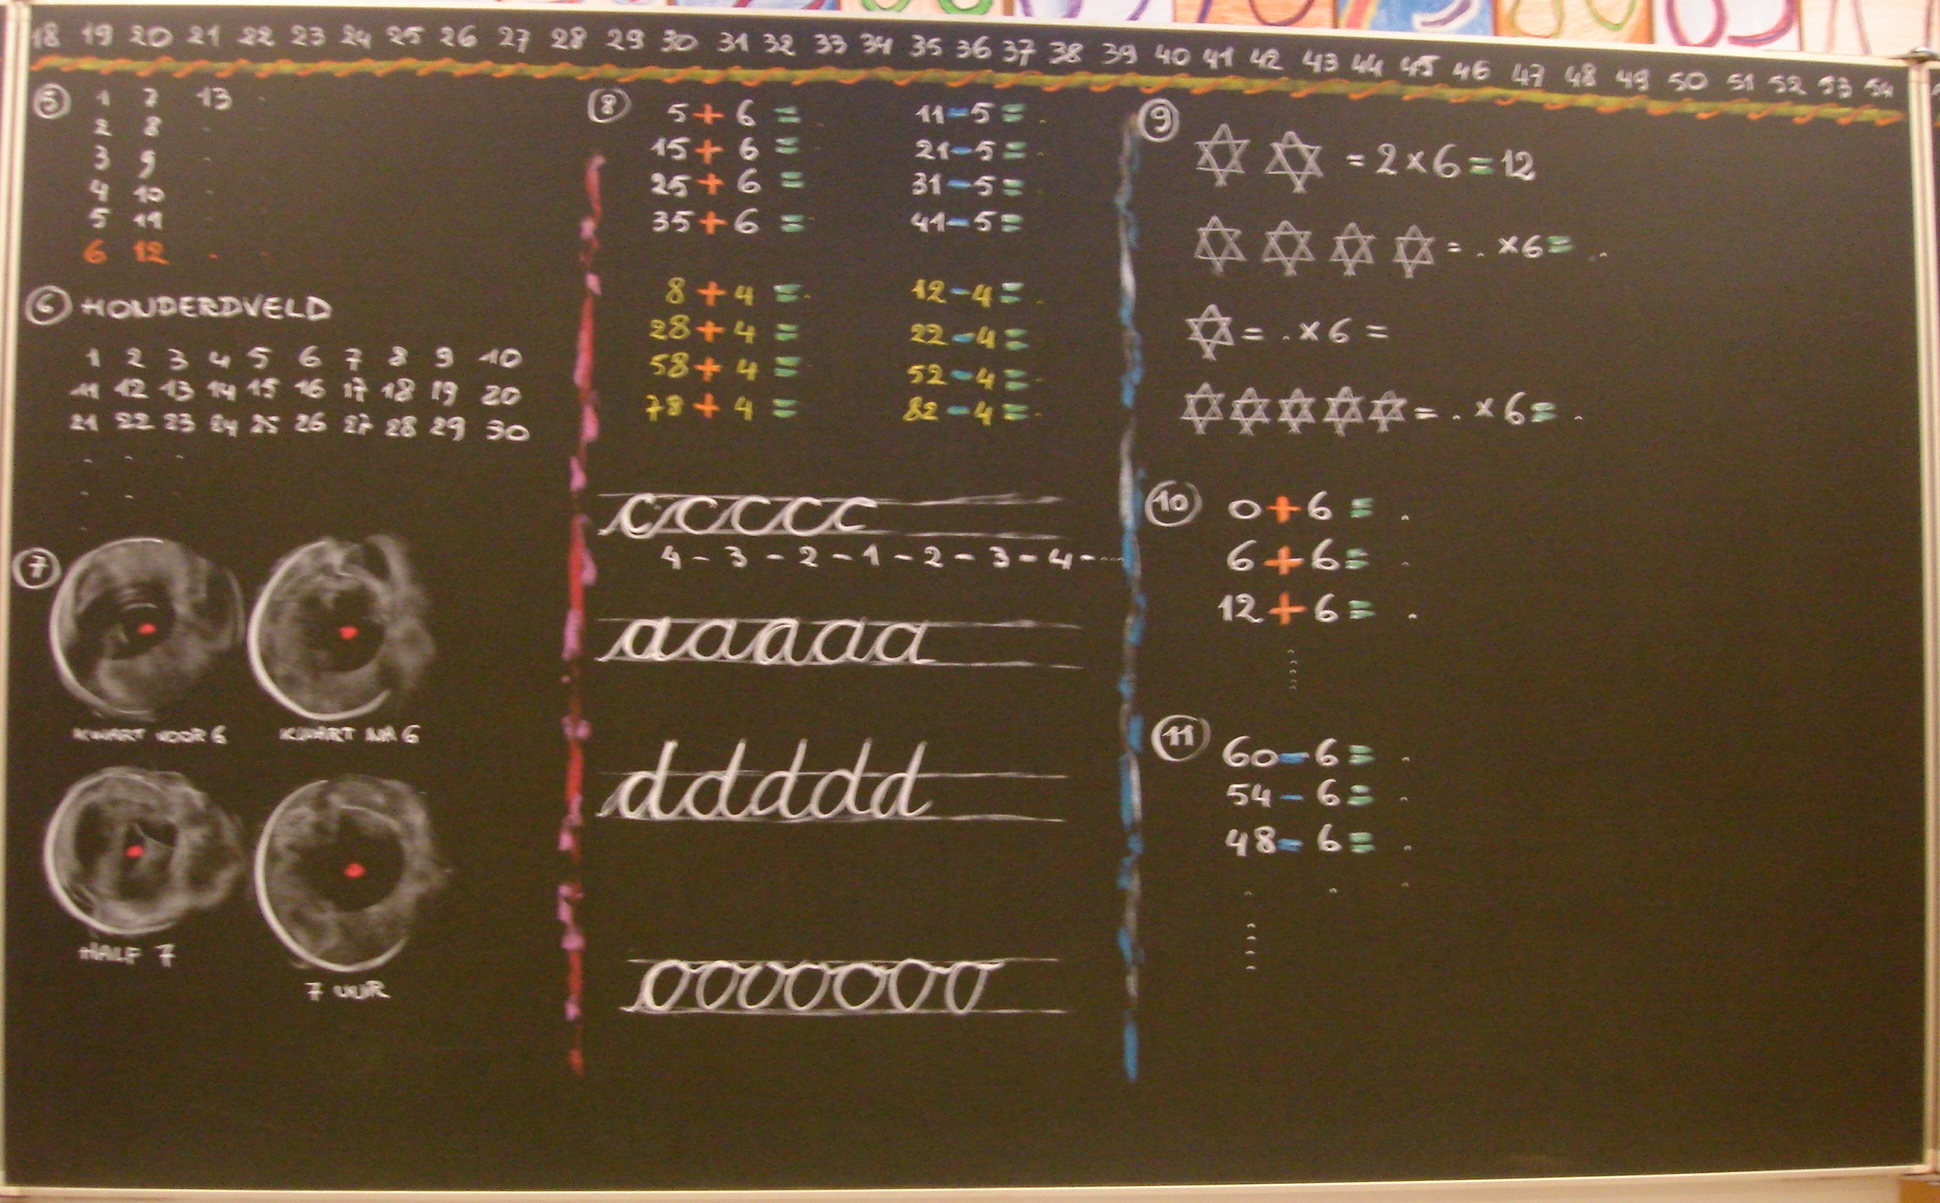 18 19 20 21 22 23 24 25 26 27 28 29 30 31 32 33 34 35 36 37 38 39 40 41 42 43 44 45 46 47 48 49 50 51 52 53 54
5
1 7 13
2 8
3 9
4 10
5 11
6 12
6 HONDERDVELD
1 2 3 4 5 6 7 8 9 10
11 12 13 14 15 16 17 18 19 20
21 22 23 24 25 26 27 28 29 30
7
KWART VOOR 6
KWART NA 6
HALF 7
7 UUR
8
5 + 6 = . 11 - 5 = .
15 + 6 = . 21 - 5 = .
25 + 6 = 31 - 5 =
35 + 6 = 41 - 5 =
8 + 4 = . 12 - 4 = .
28 + 4 = 22 - 4 = .
58 + 4 = 52 - 4 = .
78 + 4 = 82 - 4 = .
c c c c c
4 - 3 - 2 - 1 - 2 - 3 - 4 - ...
a a a a a
d d d d d
o o o o o o o
9
= 2 × 6 = 12
= . × 6 = ..
= . × 6 =
= . × 6 = .
10
0 + 6 = .
6 + 6 = .
12 + 6 = .
11
60 - 6 = .
54 - 6 = .
48 - 6 = .